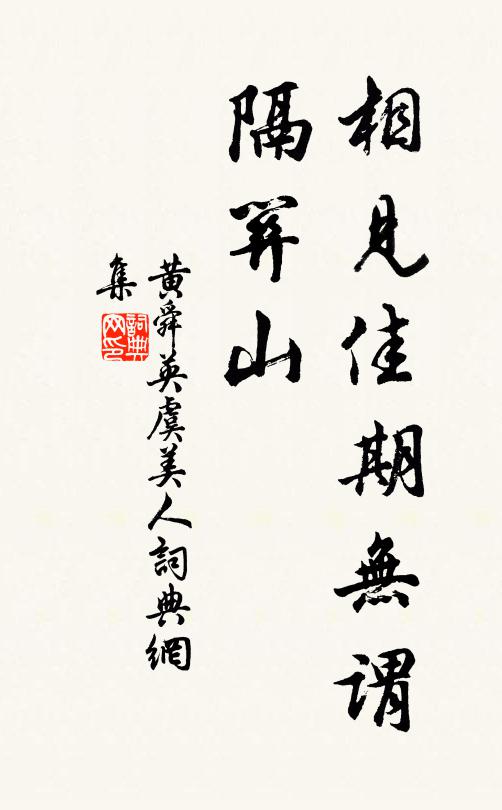 相見佳期無謂
隔關山
黃舜英虞美人詞典網
集
詞典
网印